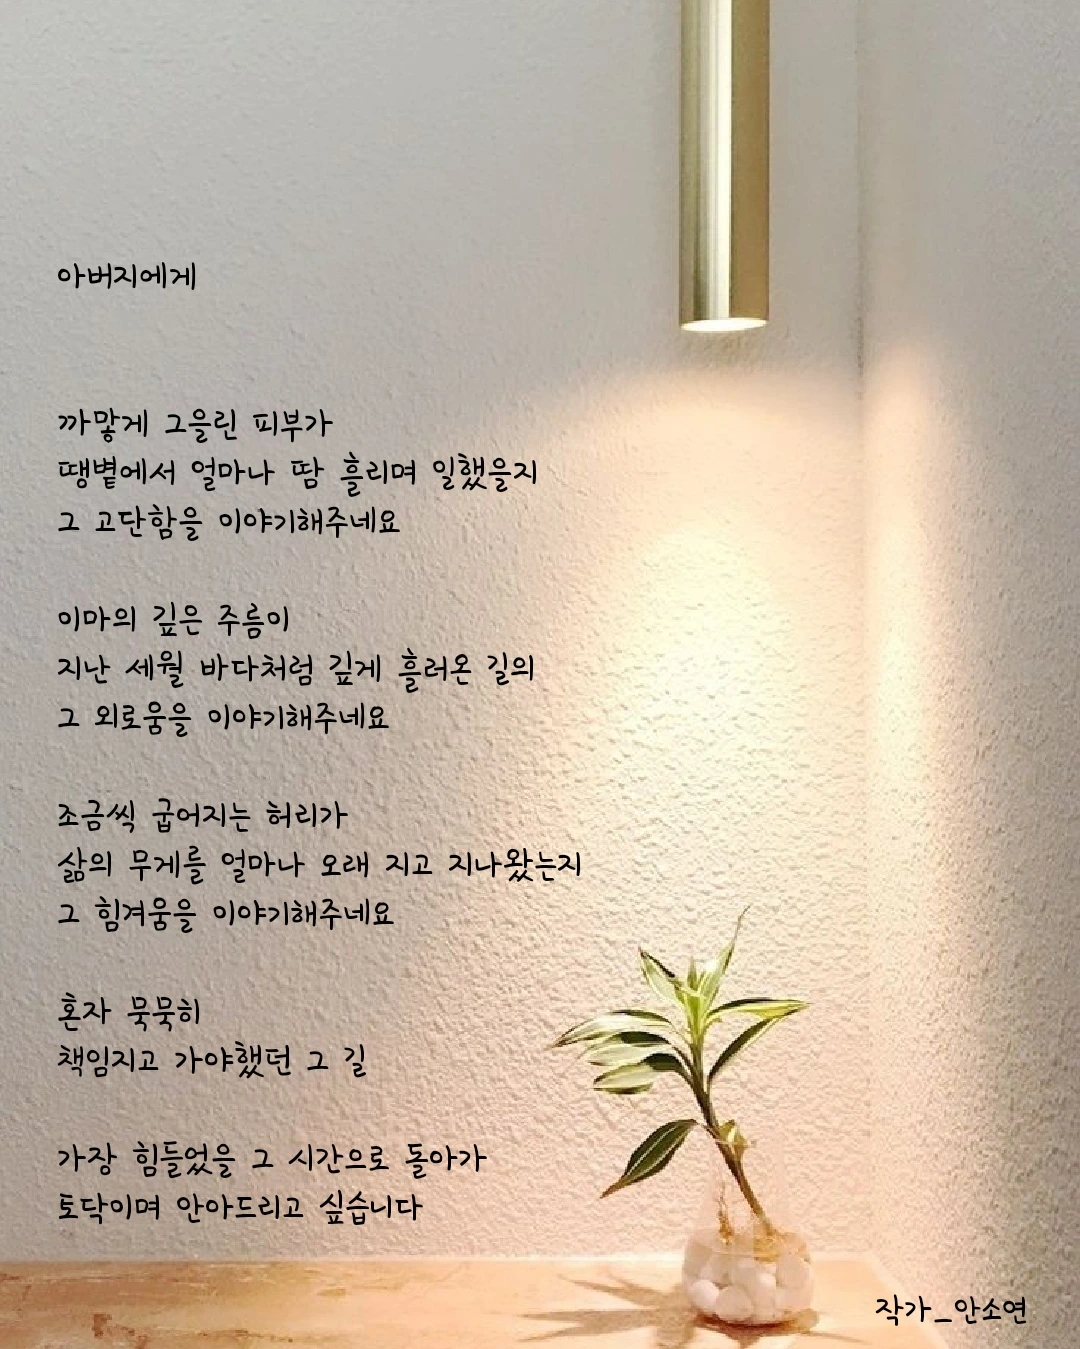 아버지에게
까맣게 그을린 피부가
땡볕에서 얼마나 땀 흘리며 일했을지
그 고단함을 이야기해주네요
이마의 깊은 주름이
지난 세월 바다처럼 깊게 흘러온 길의
그 외로움을 이야기해주네요
조금씩 굽어지는 허리가
삶의 무게를 얼마나 오래 지고 지나왔는지
그 힘겨움을 이야기해주네요
혼자 묵묵히
책임지고 가야했던 그 길
가장 힘들었을 그 시간으로 돌아가
토닥이며 안아드리고 싶습니다
작가_안소연